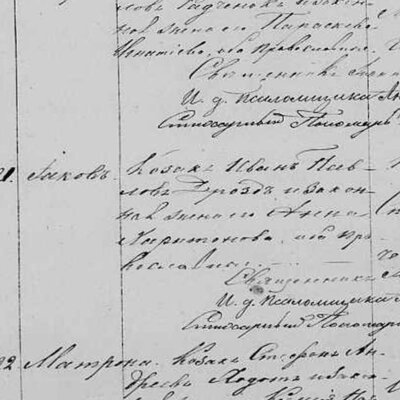 ная жена его Параскева
Игнатіева, оба православные.
Священникъ
И. д. Псаломщика
Стихарный Пономарь
21. Іаковъ. Козакъ Иванъ Пав-
ловъ Дроздъ и закон-
ная жена его Анна
Харитонова, оба пра-
вославные.
Священникъ
И. д. Псаломщика
Стихарный Пономарь
22 Матрона. Козакъ Стефанъ Ан-
дреевъ